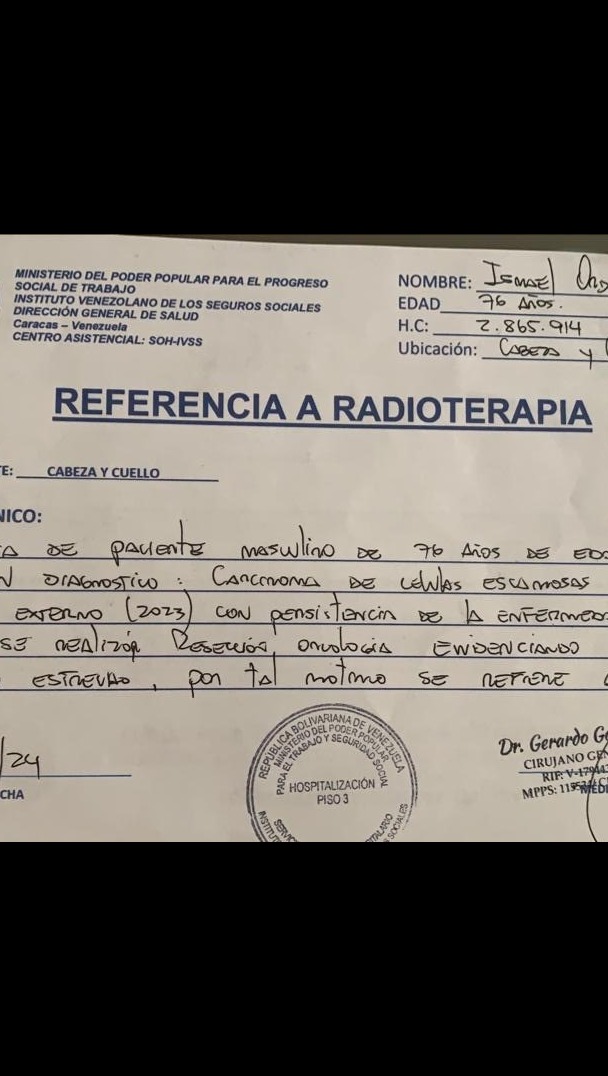 MINISTERIO DEL PODER POPULAR PARA EL PROGRESO
SOCIAL DE TRABAJO
INSTITUTO VENEZOLANO DE LOS SEGUROS SOCIALES
DIRECCIÓN GENERAL DE SALUD
Caracas – Venezuela
CENTRO ASISTENCIAL: SOH-IVSS
NOMBRE: ISMAEL
EDAD 76 AÑOS.
H.C: 2.865.914
Ubicación: CABEZA y
REFERENCIA A RADIOTERAPIA
TE: CABEZA Y CUELLO
NICO:
DE PACIENTE MASCULINO DE 76 AÑOS DE
DIAGNOSTICO: CARCINOMA DE CELULAS ESCAMOSAS
EXTERNO (2023) CON PERSISTENCIA DE LA
SE REALIZA EVIDENCIANDO
ESTRECHO, por tal motivo SE REFIERE
/24
CHA
REPÚBLICA BOLIVARIANA DE VENEZUELA
MINISTERIO DEL PODER POPULAR
PARA EL TRABAJO Y SEGURIDAD SOCIAL
HOSPITALIZACIÓN
PISO 3
Dr. Gerardo
CIRUJANO
RIF: V-
MPPS: